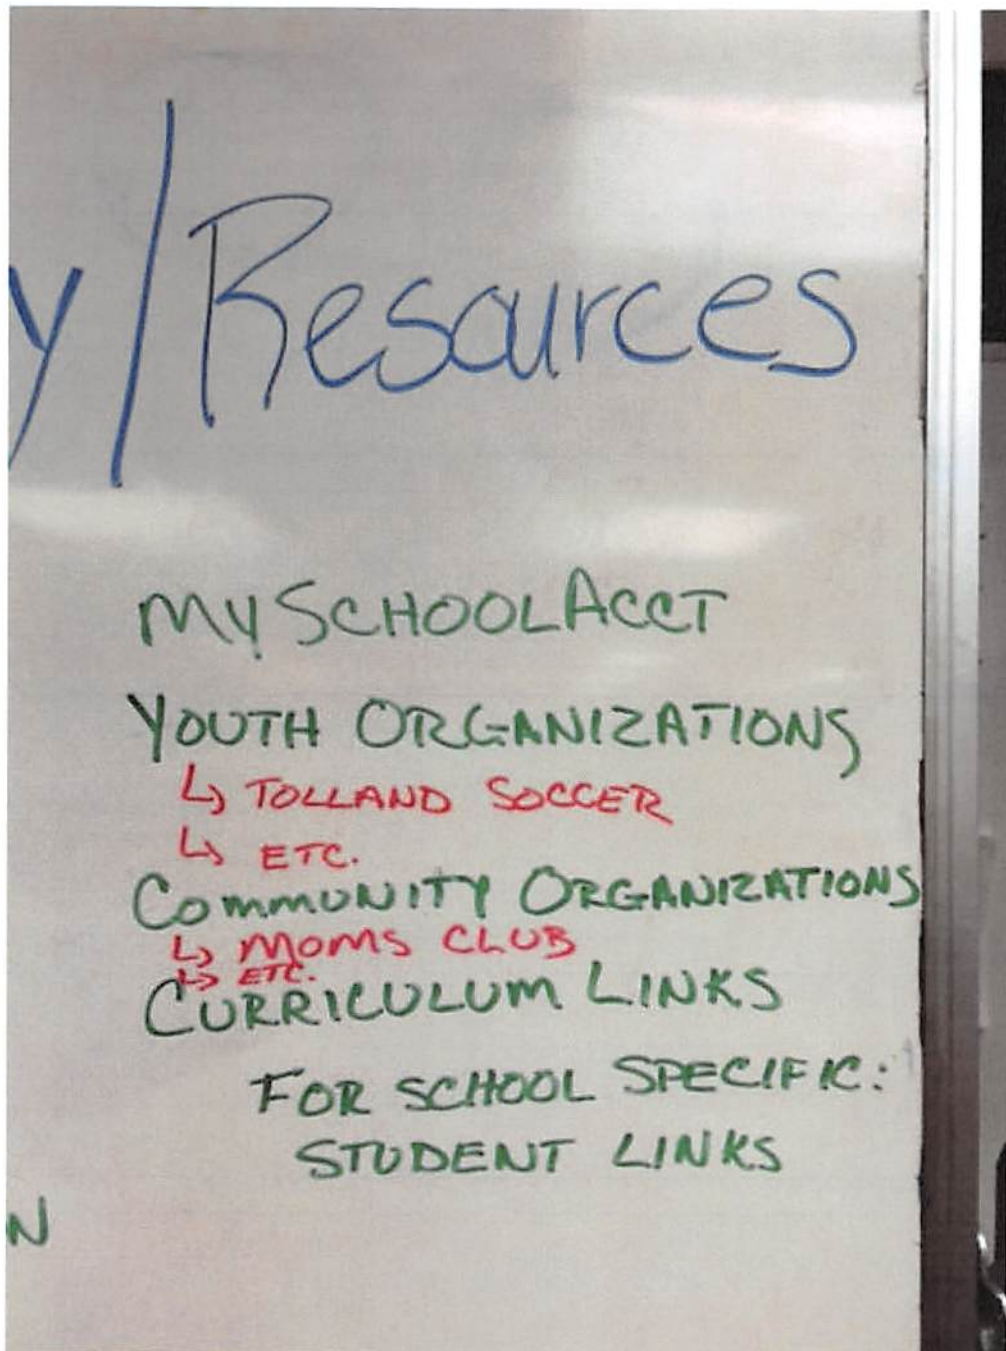 y/Resources
MYSCHOOLACCT
YOUTH ORGANIZATIONS
↳ TOLLAND SOCCER
↳ ETC.
COMMUNITY ORGANIZATIONS
↳ MOMS CLUB
↳ ETC.
CURRICULUM LINKS
FOR SCHOOL SPECIFIC:
STUDENT LINKS
N